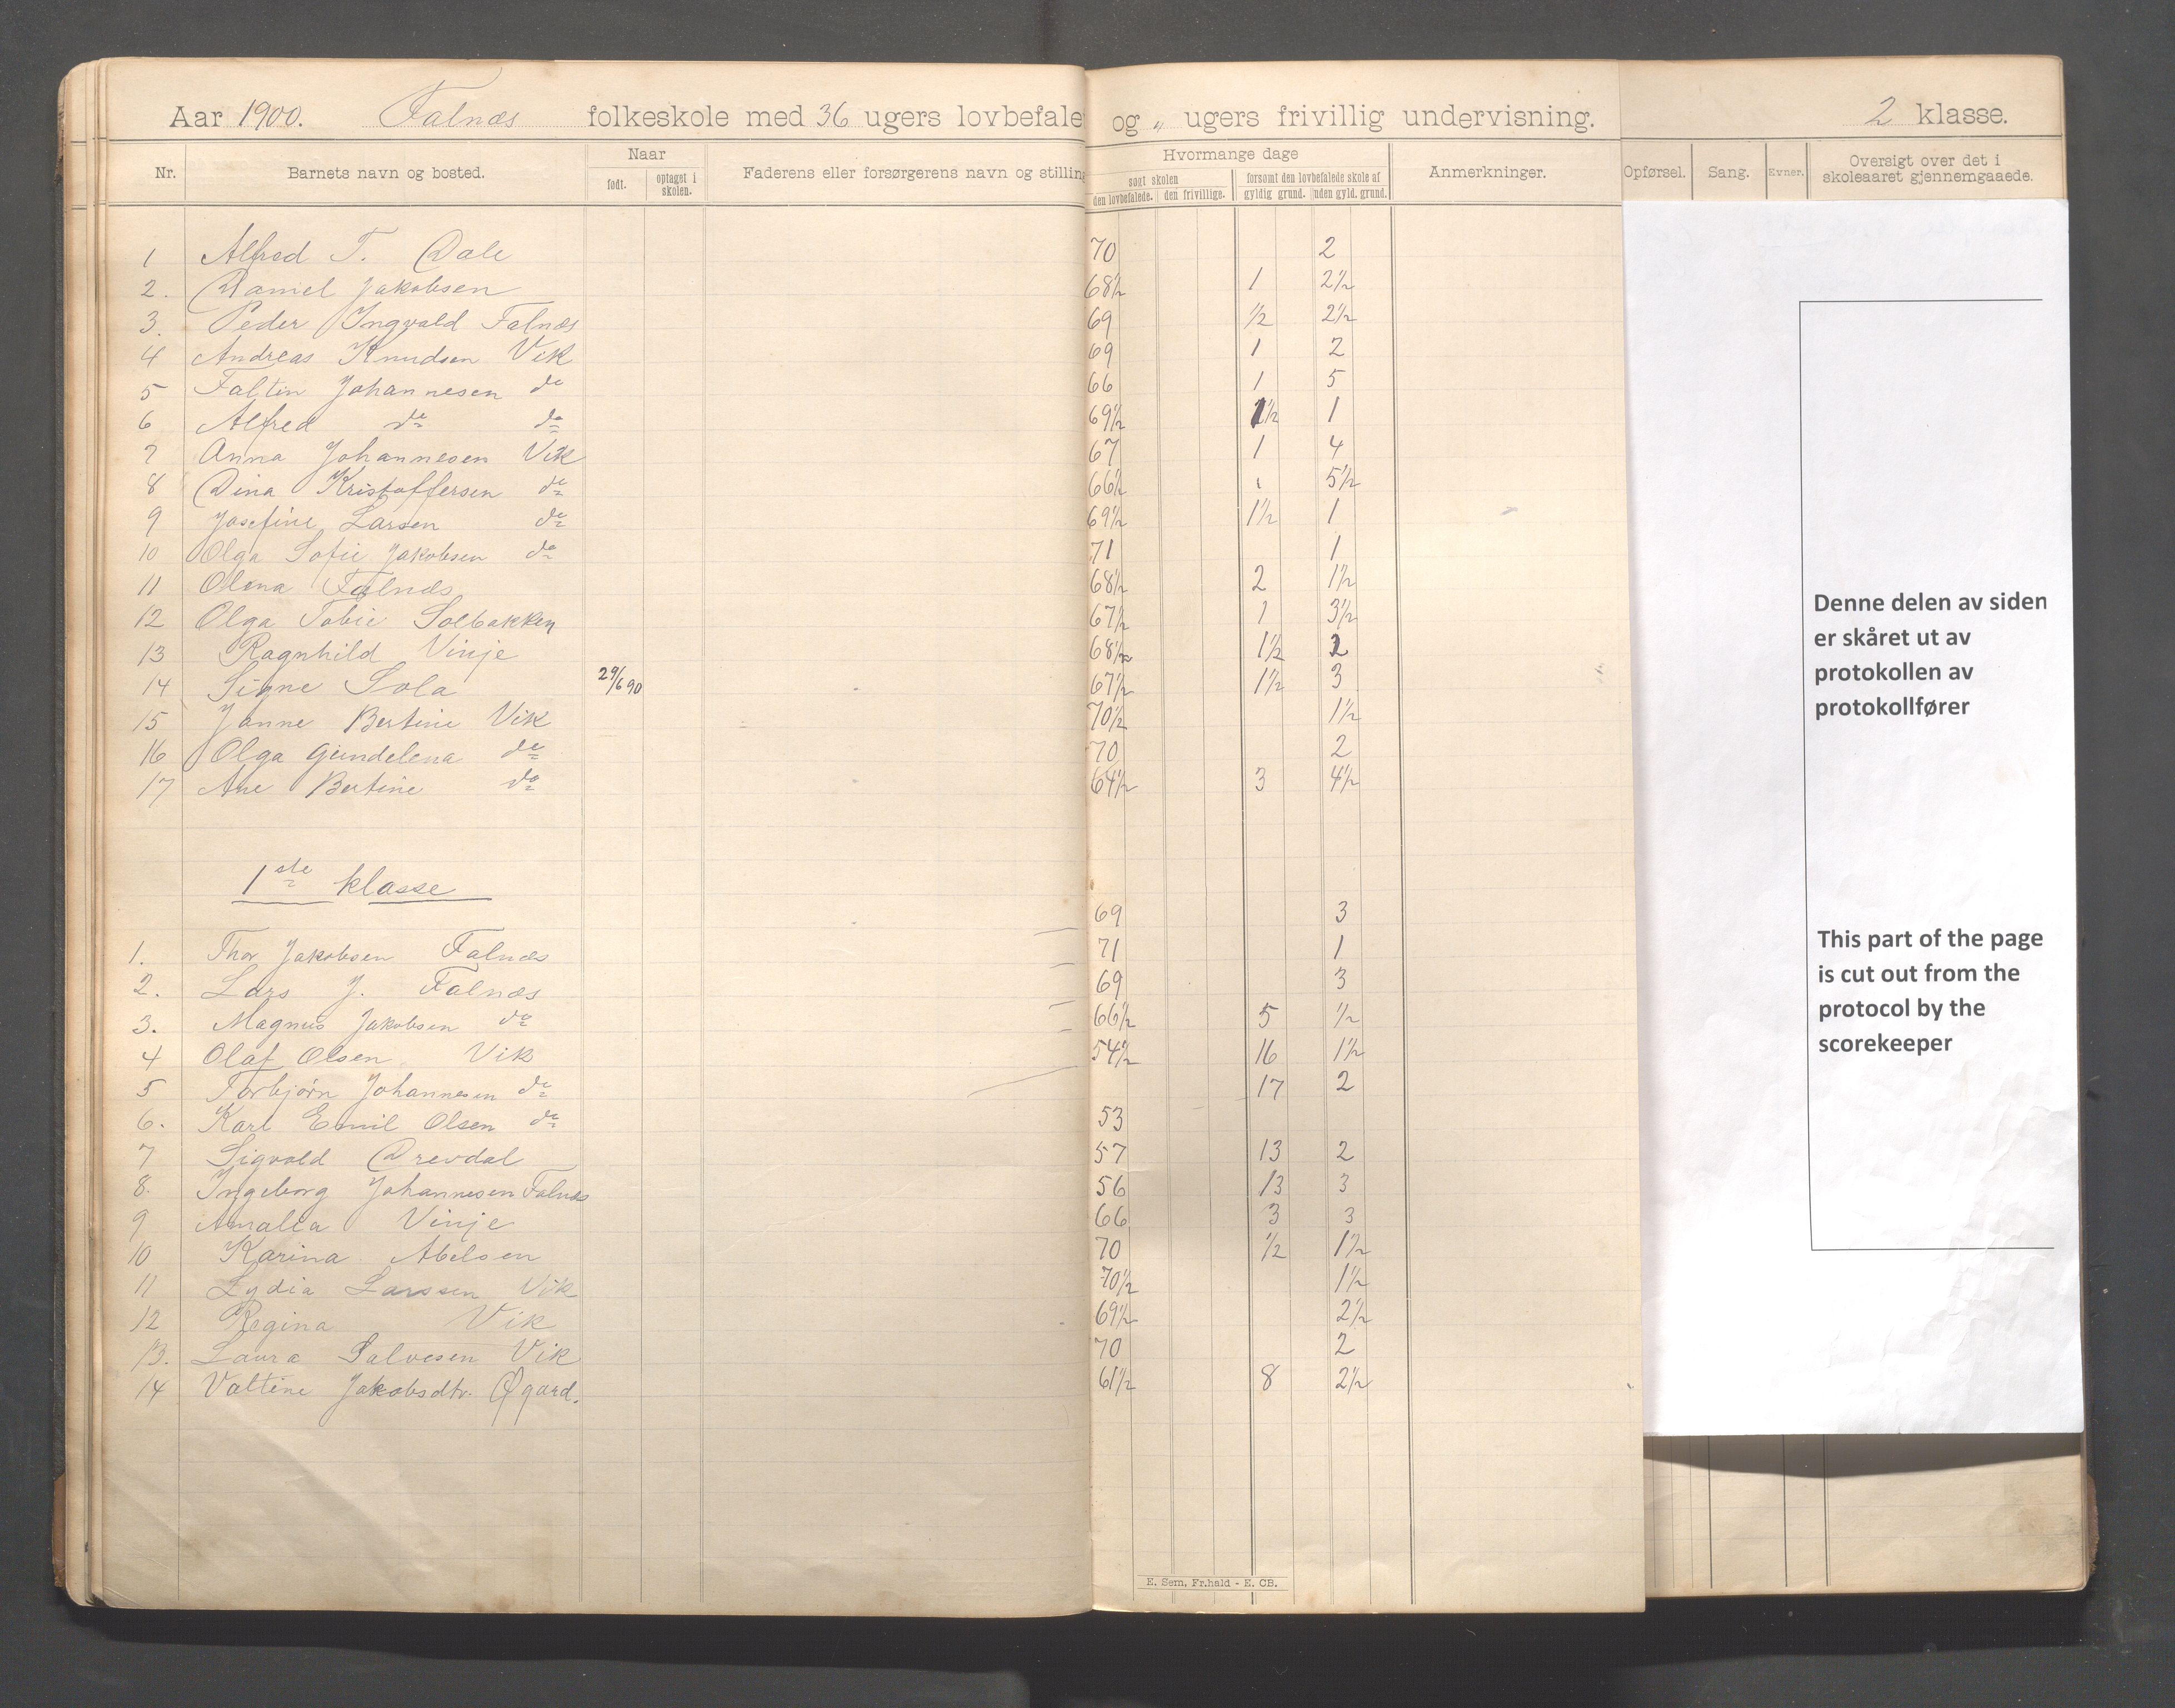 Aar 1900. Falnæs folkeskole med 36 ugers lovbefale og „ ugers frivillig undervisning. 2 klasse.
Nr. Barnets navn og bosted. Naar født. optaget i skolen. Faderens eller forsørgerens navn og stilling Hvormange dage søgt skolen den lovbefalede. den frivillige. forsømt den lovbefalede skole af gyldig grund. uden gyld. grund. Anmerkninger. Opførsel. Sang. Evner. Oversigt over det i skoleaaret gjennemgaaede.
1 Alfred T. Dale 70 2
2. Daniel Jakobsen 68½ 1 2½
3. Peder Ingvald Falnæs 69 ½ 2½
4 Andreas Knudsen Vik 69 1 2
5 Faltin Johannesen do 66 1 5
6 Alfred do do 69½ 1½ 1
7 Anna Johannesen Vik 67 1 4
8 Dina Kristoffersen do 66½ 5½
9 Josefine Larsen do 69½ 1½ 1
10 Olga Sofie Jakobsen do 71 1
11 Olena Falnæs 68½ 2 1½
12 Olga Tobie Solbakken 67½ 1 3½
13 Ragnhild Vinje 68½ 1½ 2
14 Signe Sola 29/6 90 67½ 1½ 3
15 Janne Bertine Vik 70½ 1½
16 Olga Gundelena do 70 2
17 Ane Bertine do 64½ 3 4½
1ste klasse
69 3
1. Thor Jakobsen Falnæs 71 1
2. Lars J. Falnæs 69 3
3. Magnus Jakobsen do 66½ 5 ½
4 Olaf Olsen Vik 54½ 16 1½
5 Torbjørn Johannesen do 17 2
6. Karl Emil Olsen do 53
7 Sigvald Drevdal 57 13 2
8. Ingeborg Johannesen Falnæs 56 13 3
9 Amalia Vinje 66 3 3
10 Karina Abelsen 70 ½ 1½
11 Lydia Larssen Vik 70½ 1½
12 Regina Vik 69½ 2½
13. Laura Salvesen Vik 70 2
14 Valtine Jakobsdtr. Øgard. 61½ 8 2½
E. Sem, Fr.hald - E. CB.
Denne delen av siden
er skåret ut av
protokollen av
protokollfører
This part of the page
is cut out from the
protocol by the
scorekeeper